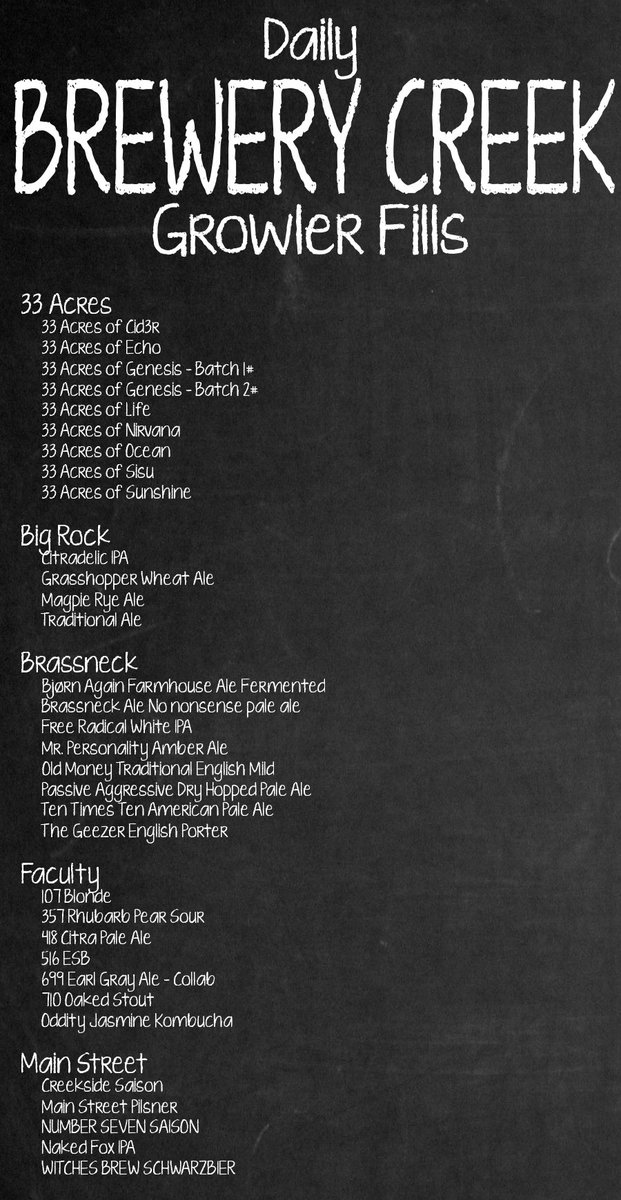 Daily
BREWERY CREEK
Growler Fills
33 Acres
33 Acres of Cid3r
33 Acres of Echo
33 Acres of Genesis - Batch 1#
33 Acres of Genesis - Batch 2#
33 Acres of Life
33 Acres of Nirvana
33 Acres of Ocean
33 Acres of Sisu
33 Acres of Sunshine
Big Rock
Citradelic IPA
Grasshopper Wheat Ale
Magpie Rye Ale
Traditional Ale
Brassneck
Bjørn Again Farmhouse Ale Fermented
Brassneck Ale No nonsense pale ale
Free Radical White IPA
Mr. Personality Amber Ale
Old Money Traditional English Mild
Passive Aggressive Dry Hopped Pale Ale
Ten Times Ten American Pale Ale
The Geezer English Porter
Faculty
107 Blonde
357 Rhubarb Pear Sour
418 Citra Pale Ale
516 ESB
699 Earl Gray Ale - Collab
710 Oaked Stout
Oddity Jasmine Kombucha
Main Street
Creekside Saison
Main Street Pilsner
NUMBER SEVEN SAISON
Naked Fox IPA
WITCHES BREW SCHWARZBIER